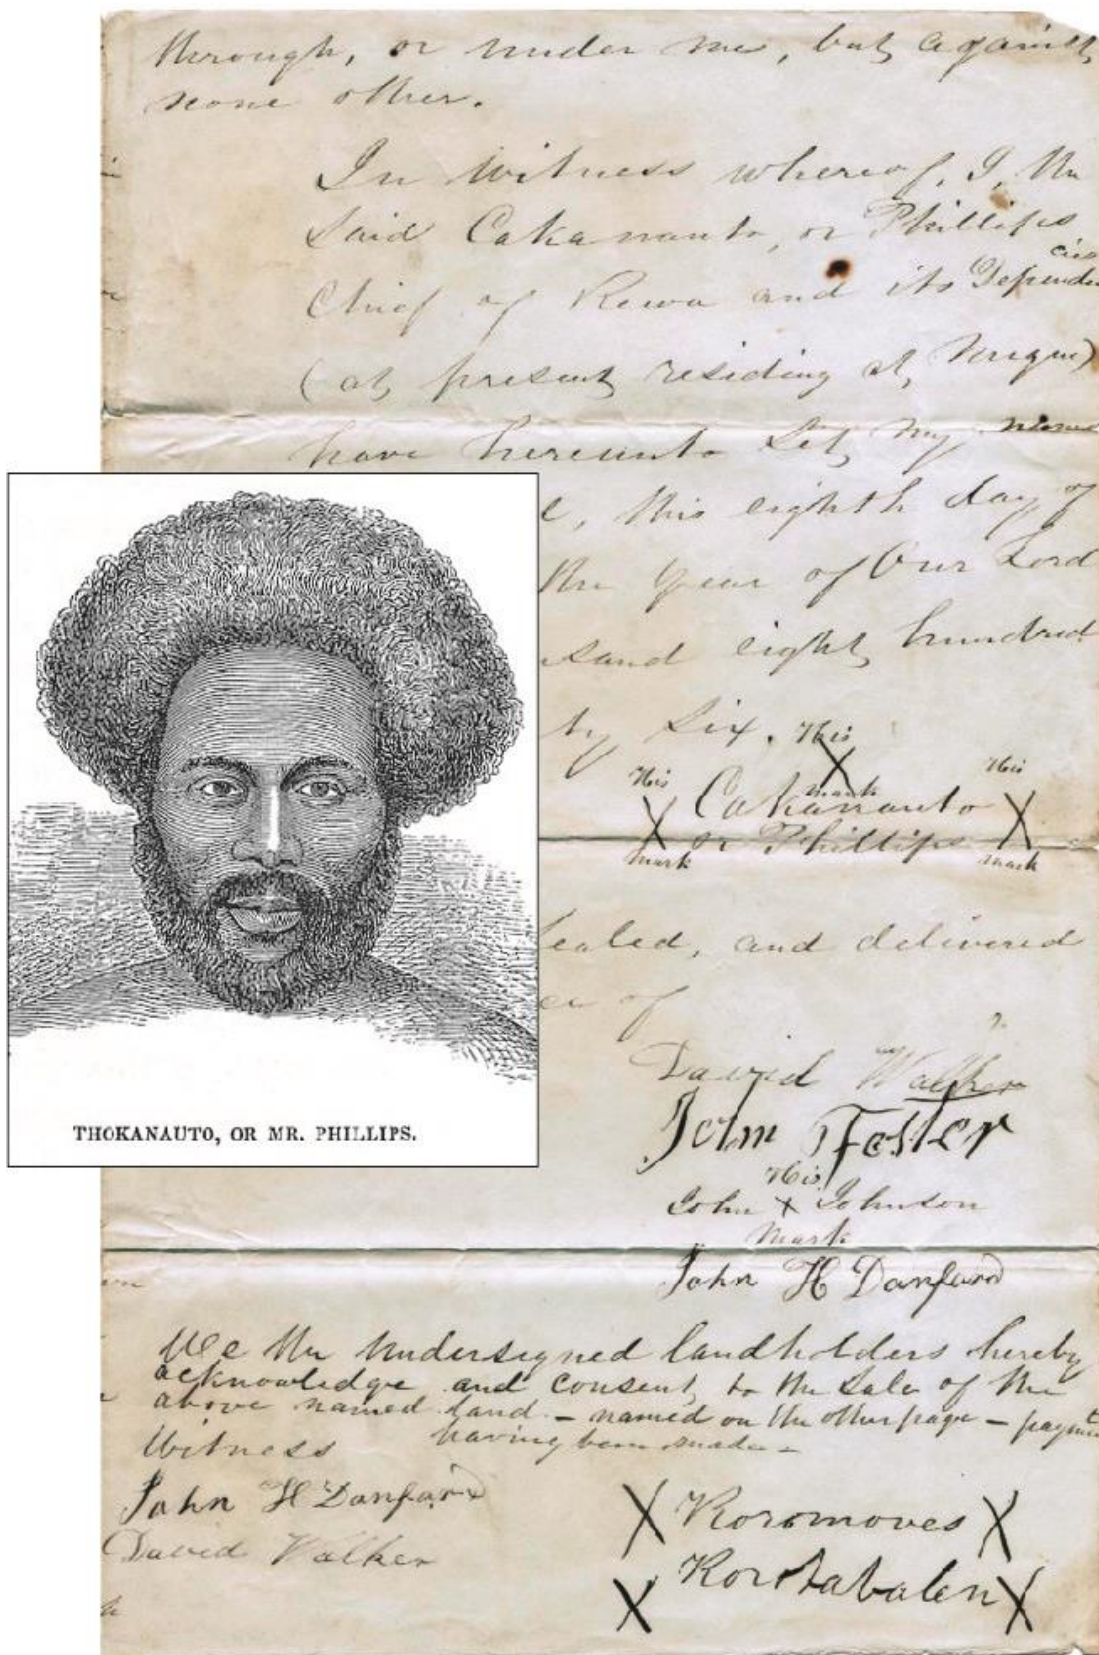 through, or under me, but against
none other.
In Witness whereof, I, the
Said Cakanauto, or Phillips
Chief of Rewa and its Dependencies
(at present residing at
have hereunto Set my name
this eighth day of
the Year of Our Lord
sand eight hundred
ty Six.
His X mark
His X mark Cakanauto His X mark
or Phillips
ealed, and delivered
ce of
David Walker
John Foster
His
John X Johnson
Mark
John H Danford
We the Undersigned landholders hereby
acknowledge and consent to the Sale of the
above named land - named on the other page - payment
having been made -
Witness
John H Danford
David Walker
X Koromoves X
X X
THOKANAUTO, OR MR. PHILLIPS.